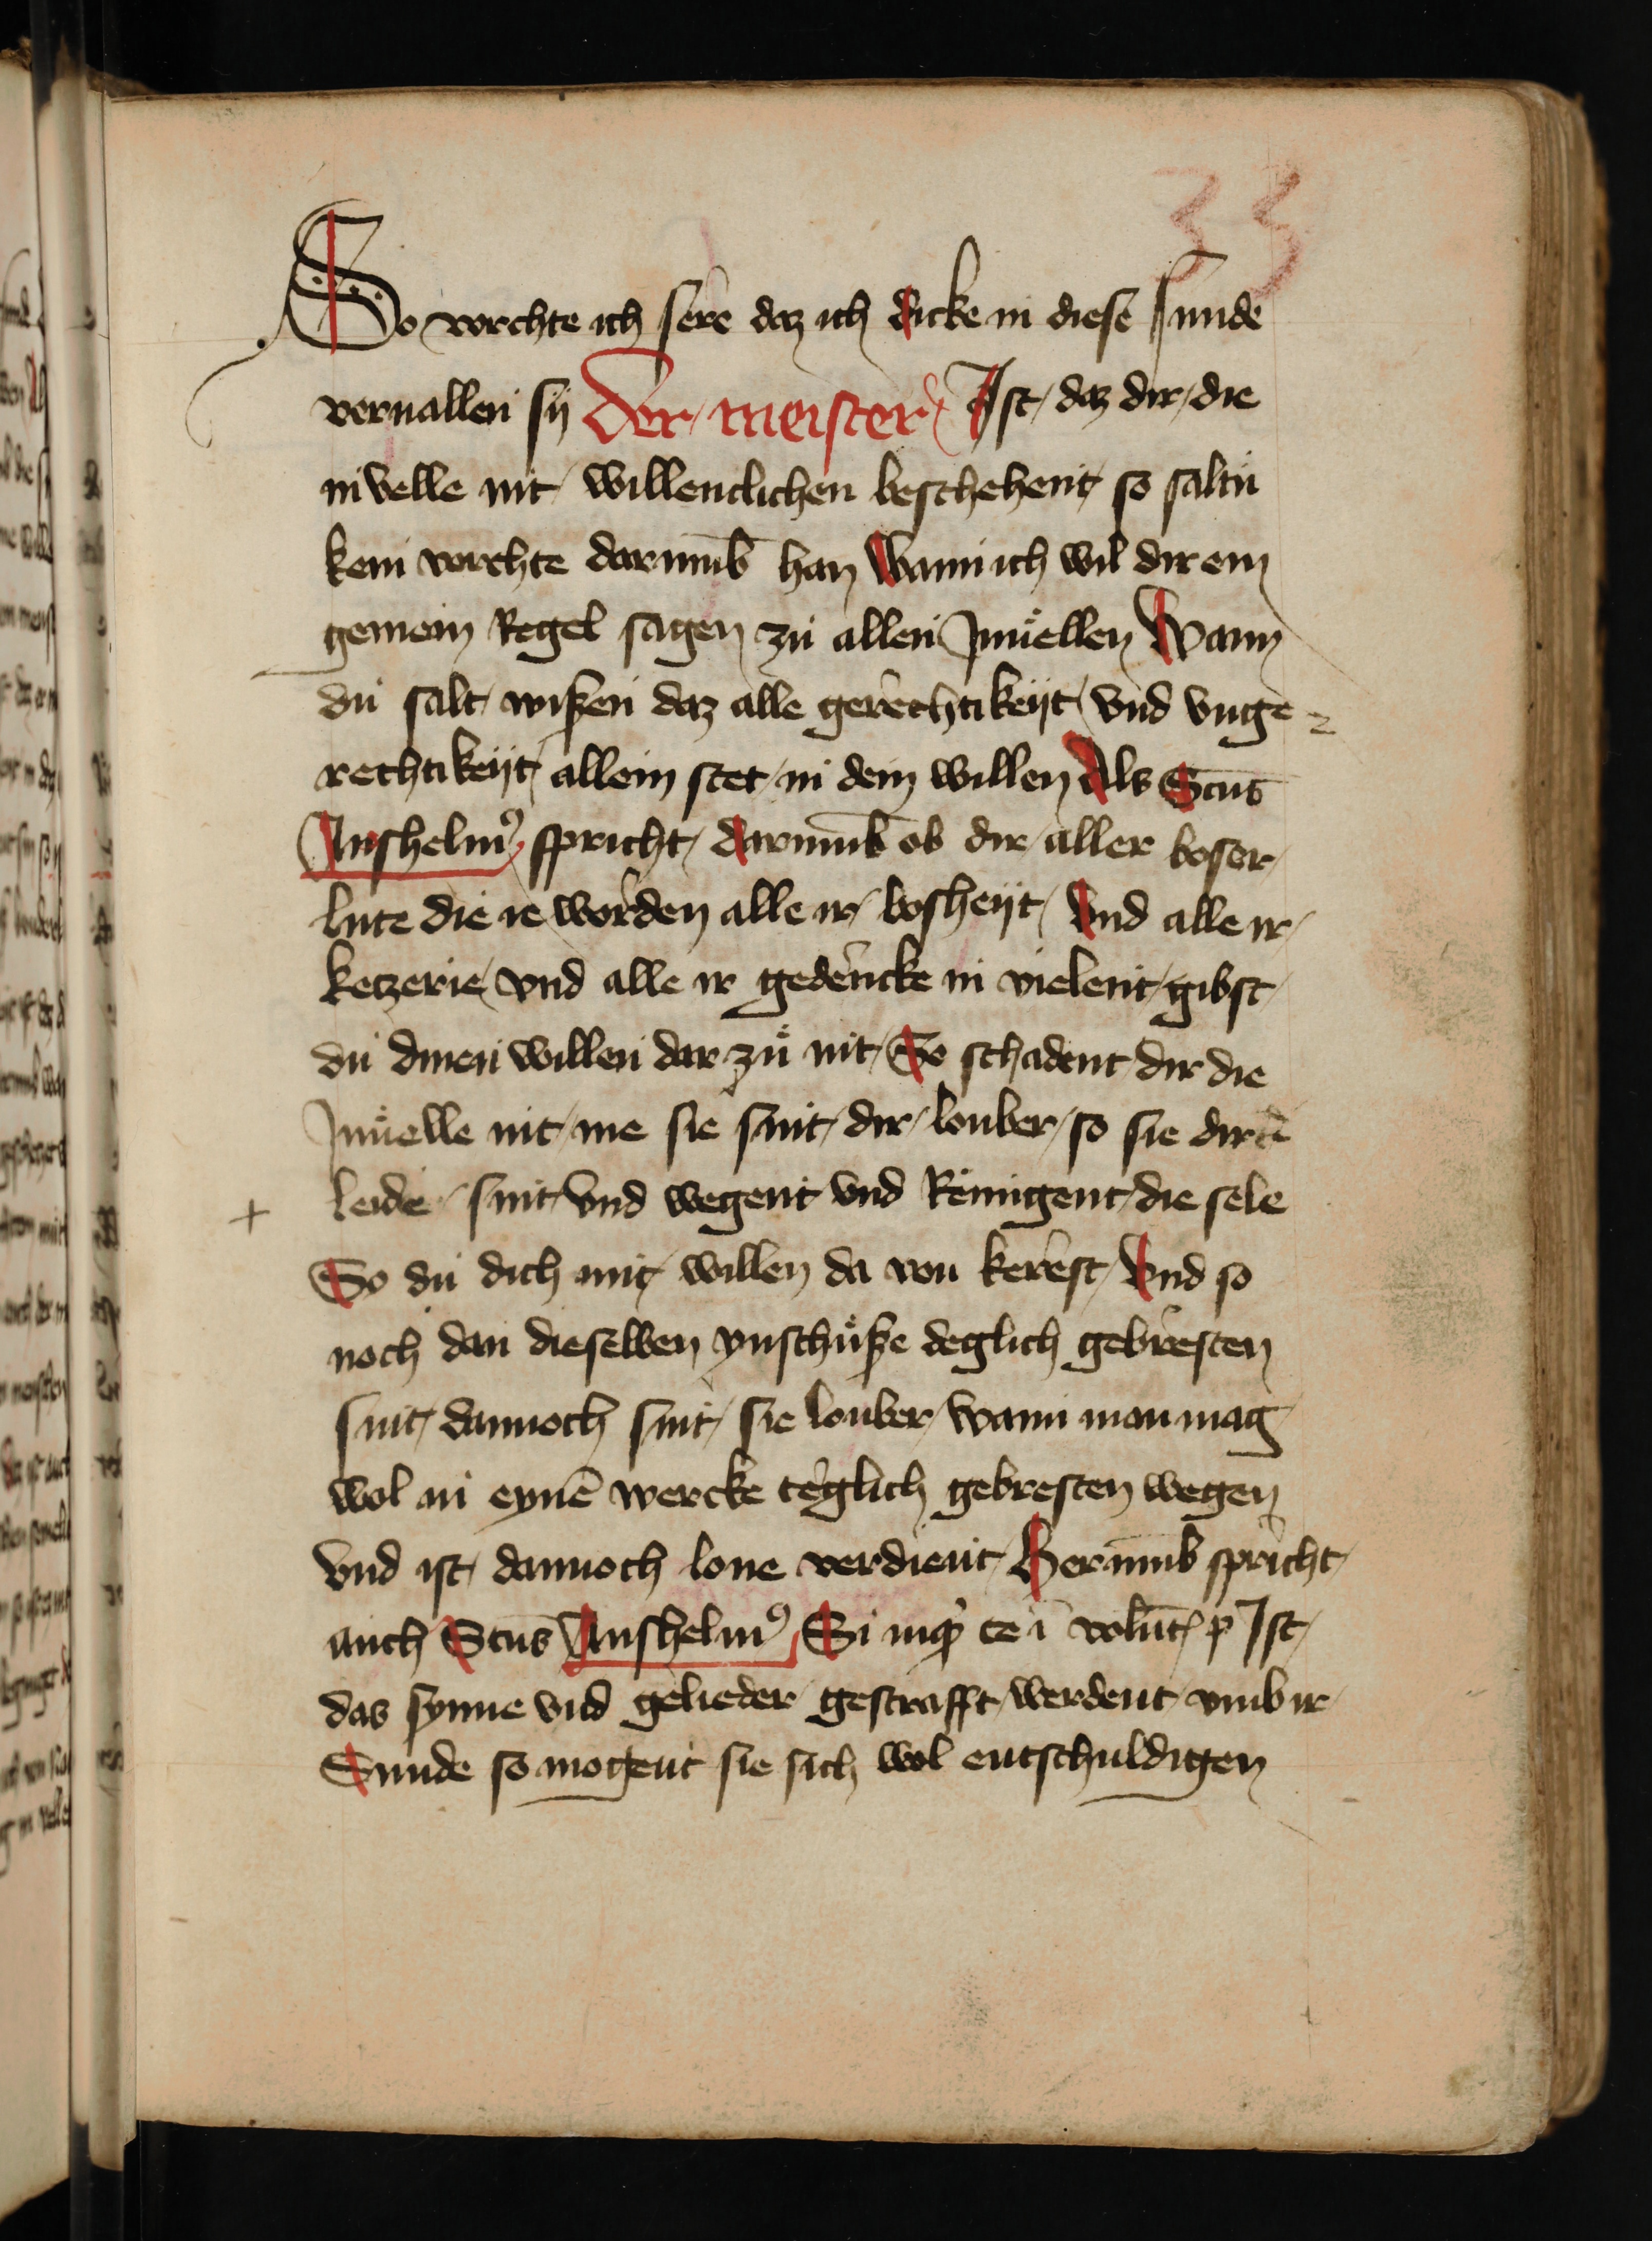 33
So vorchte ich sere daz ich dicke in diese sunde
veruallen sij Der meister Ist daz dir die
inuelle nit willenclichen beschehent so saltu
kein vorchte darumb han Wann ich wil dir ein
gemein Regel sagen zu allen Inuellen Wann
du salt wißen daz alle gerechtikeijt vnd vnge
rechtikeijt allein stet in dem willen Als Sctus
Anshelmꝰ spricht darumb ob dir aller boser
lute die ie worden alle ir bosheijt Vnd alle ir
ketzerie vnd alle ir gedencke in vielent gibst
du dinen willen dar zu nit So schadent dir die
Inuelle nit me sie sint dir louber so sie dir
leide sint vnd wegent vnd Reinigent die sele
So du dich mit willen da von kerest Vnd so
noch dan dieselben ynschuße deglich gebresten
sint dannoch sint sie louber wann man mag
wol in eynē wercke teglich gebresten wegen
vnd ist dannoch lone verdient Darumb spricht
auch Sctus Anshelmꝰ Si Ist
das synne vnd gelieder gestrafft werdent vmb ir
Sunde so mogent sie sich wol entschuldigen